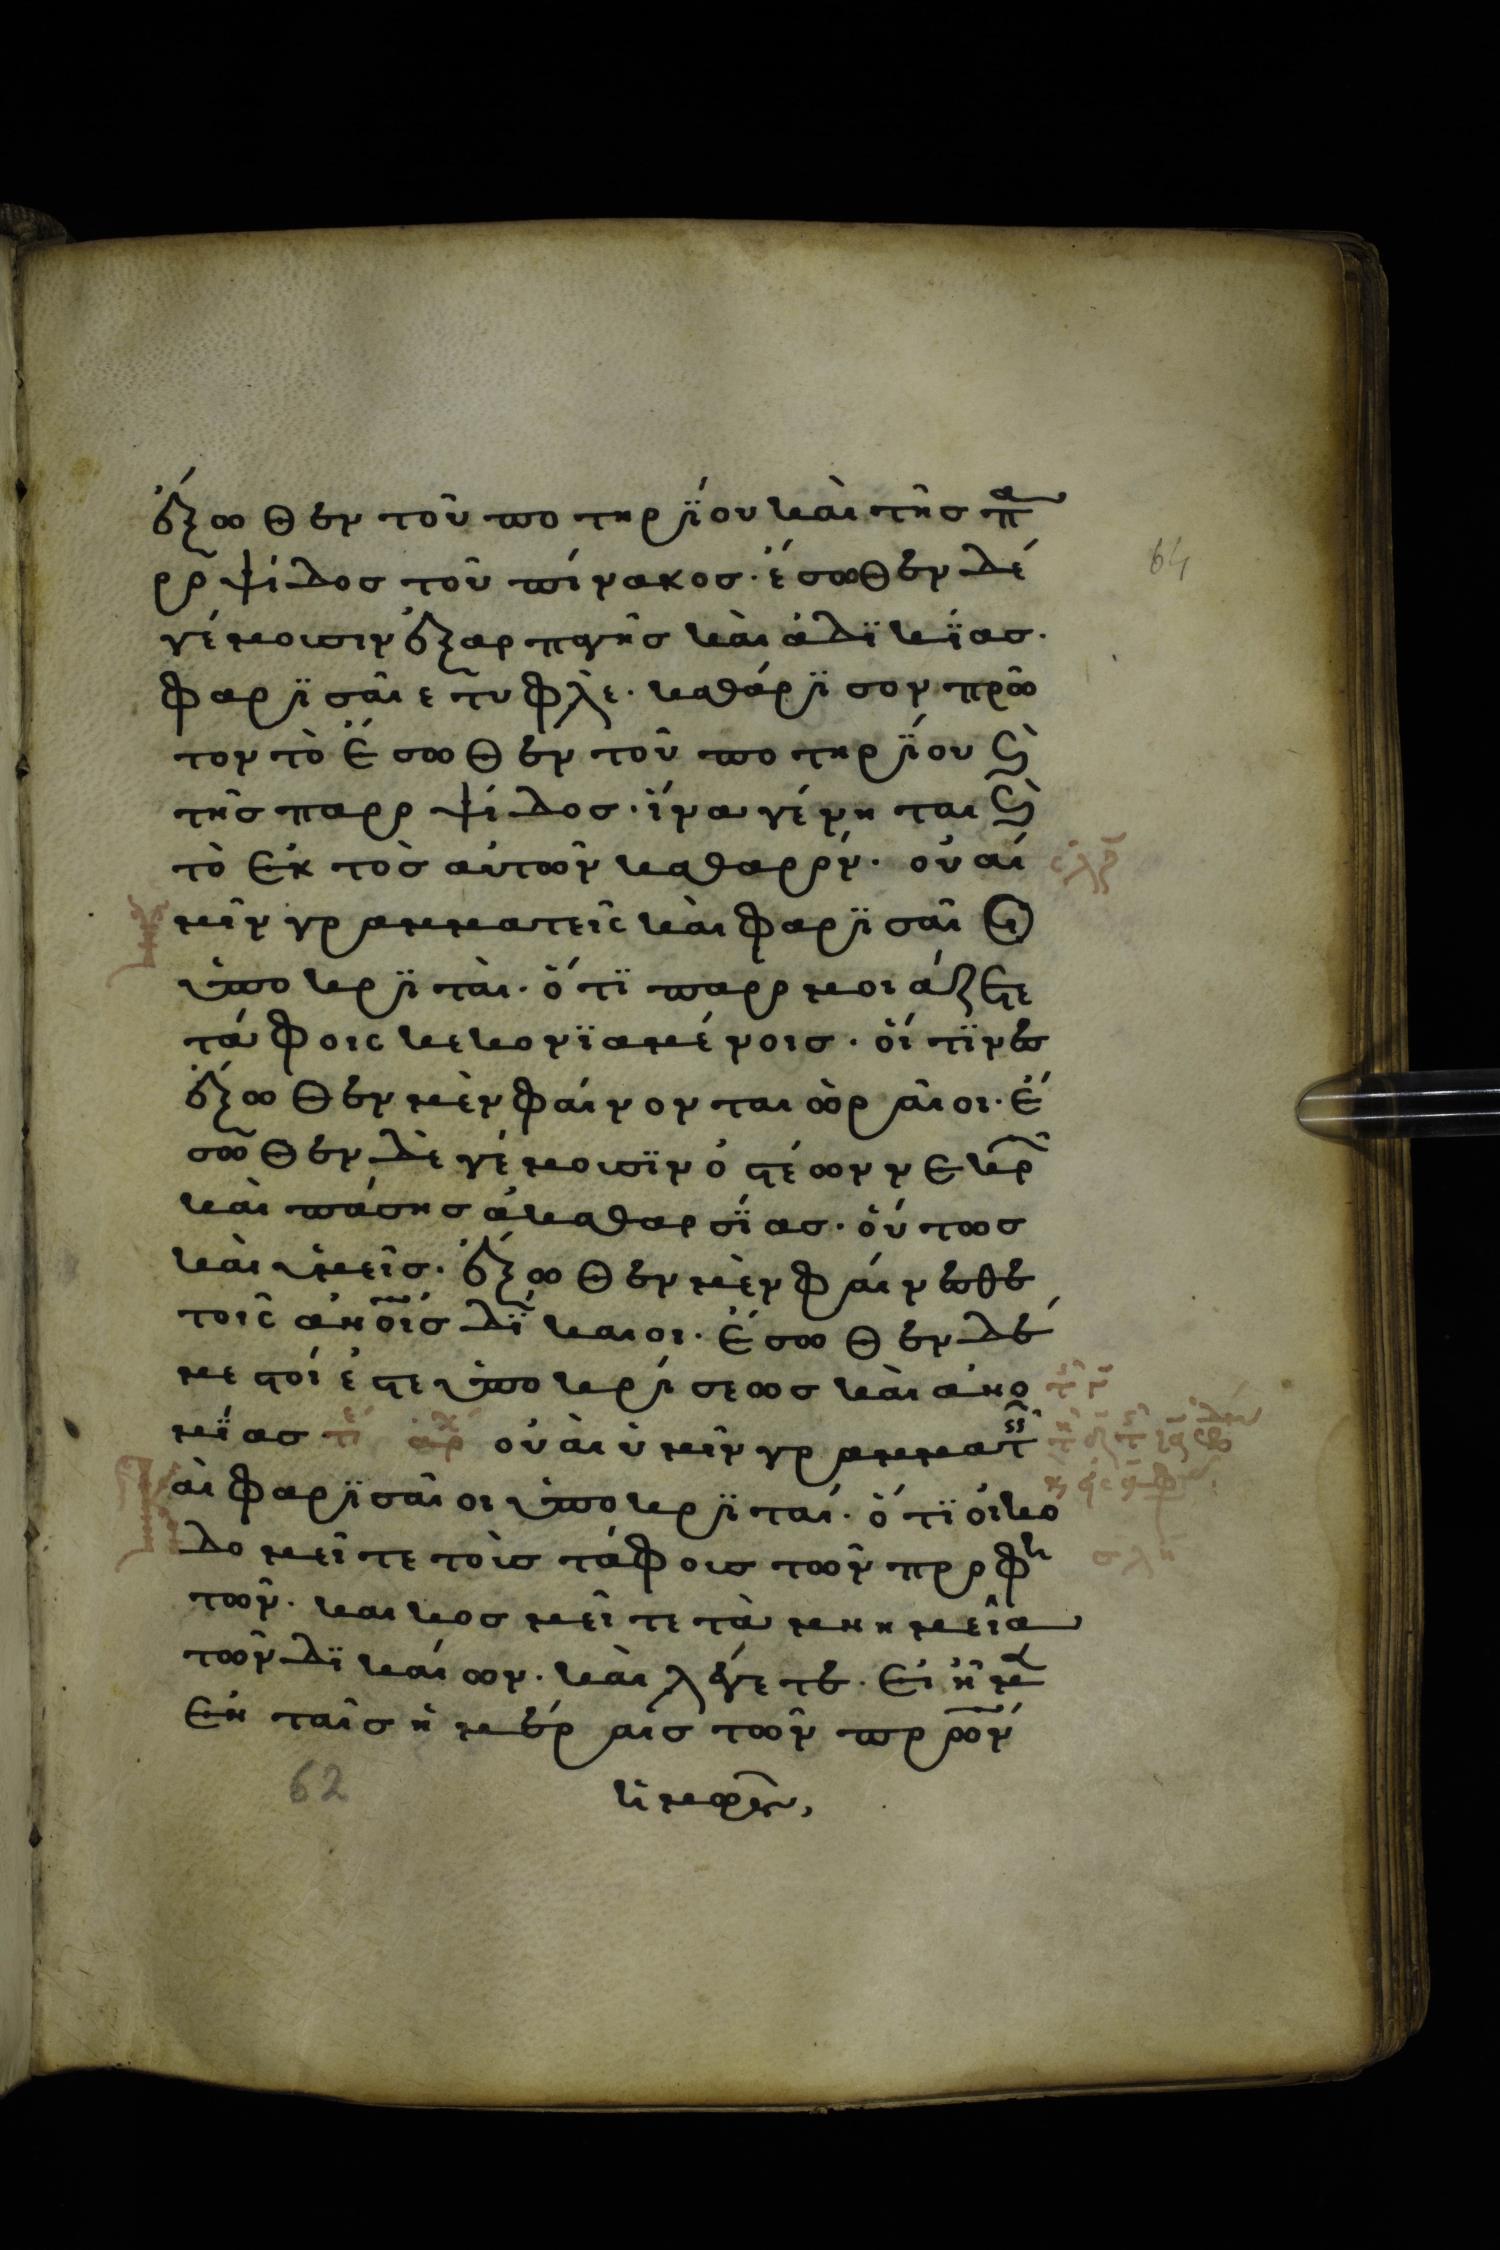 ἔξωθεν τοῦ ποτηρΐου καὶ τῆς πα
ροψίδος τοῦ πίνακος· ἔσωθεν δέ
γέμουσιν ἐξ ἁρπαγῆς καὶ ἀδϊκΐας·
φαρϊσαῖε τυφλὲ· καθάρϊσον πρῶ
τον τὸ ἔσωθεν τοῦ ποτηρΐου ϗ
τῆς παροψίδος· ἵνα γένηται ϗ
τὸ ἐκτὸς αὐτῶν καθαρόν· οὐαί
μῖν γραμματεῖς καὶ φαρϊσαῖοι
ὑποκρϊταὶ· ὅτϊ παρομοιάζετε
τάφοις κεκονϊαμένοις· οἵτϊνες
ἔξωθεν μὲν φαίνονται ὡραῖοι· ἔ
σωθεν δὲ γέμουσϊν ὀστέων νεκρῶ
καὶ πάσης ἀκαθαρσΐας· οὕτως
καὶ ὑμεῖς· ἔξωθεν μὲν φαίνεσθε
τοῖς ἀνοις δΐκαιοι· ἔσωθεν δέ
μεστοί ἐστε ὑποκρίσεως καὶ ἀνο
μΐας οὐαὶ ὑμῖν γραμματ
αὶ φαρϊσαῖοι ὑποκρϊταί· ὅτϊ οἰκο
δομεῖτε τοὶς τάφοις τῶν προφη
τῶν· και κοσμεῖτε τὰ μνημεῖα
τῶν δϊκαίων· καὶ λέγετε· εἰ ἦμα
ἐν ταῖς ἡμέραις τῶν πρων
64
62